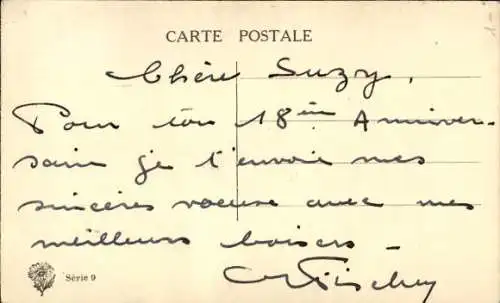 CARTE POSTALE
Chère Suzy,
Pour ton 18ème Anniver-
saire je t'envoie mes
sincères voeux avec mes
meilleurs baisers -
Série 9